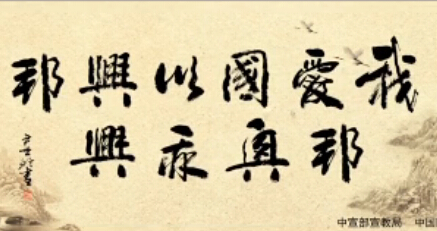 我愛國以興邦
邦興
中宣部宣教局 中国